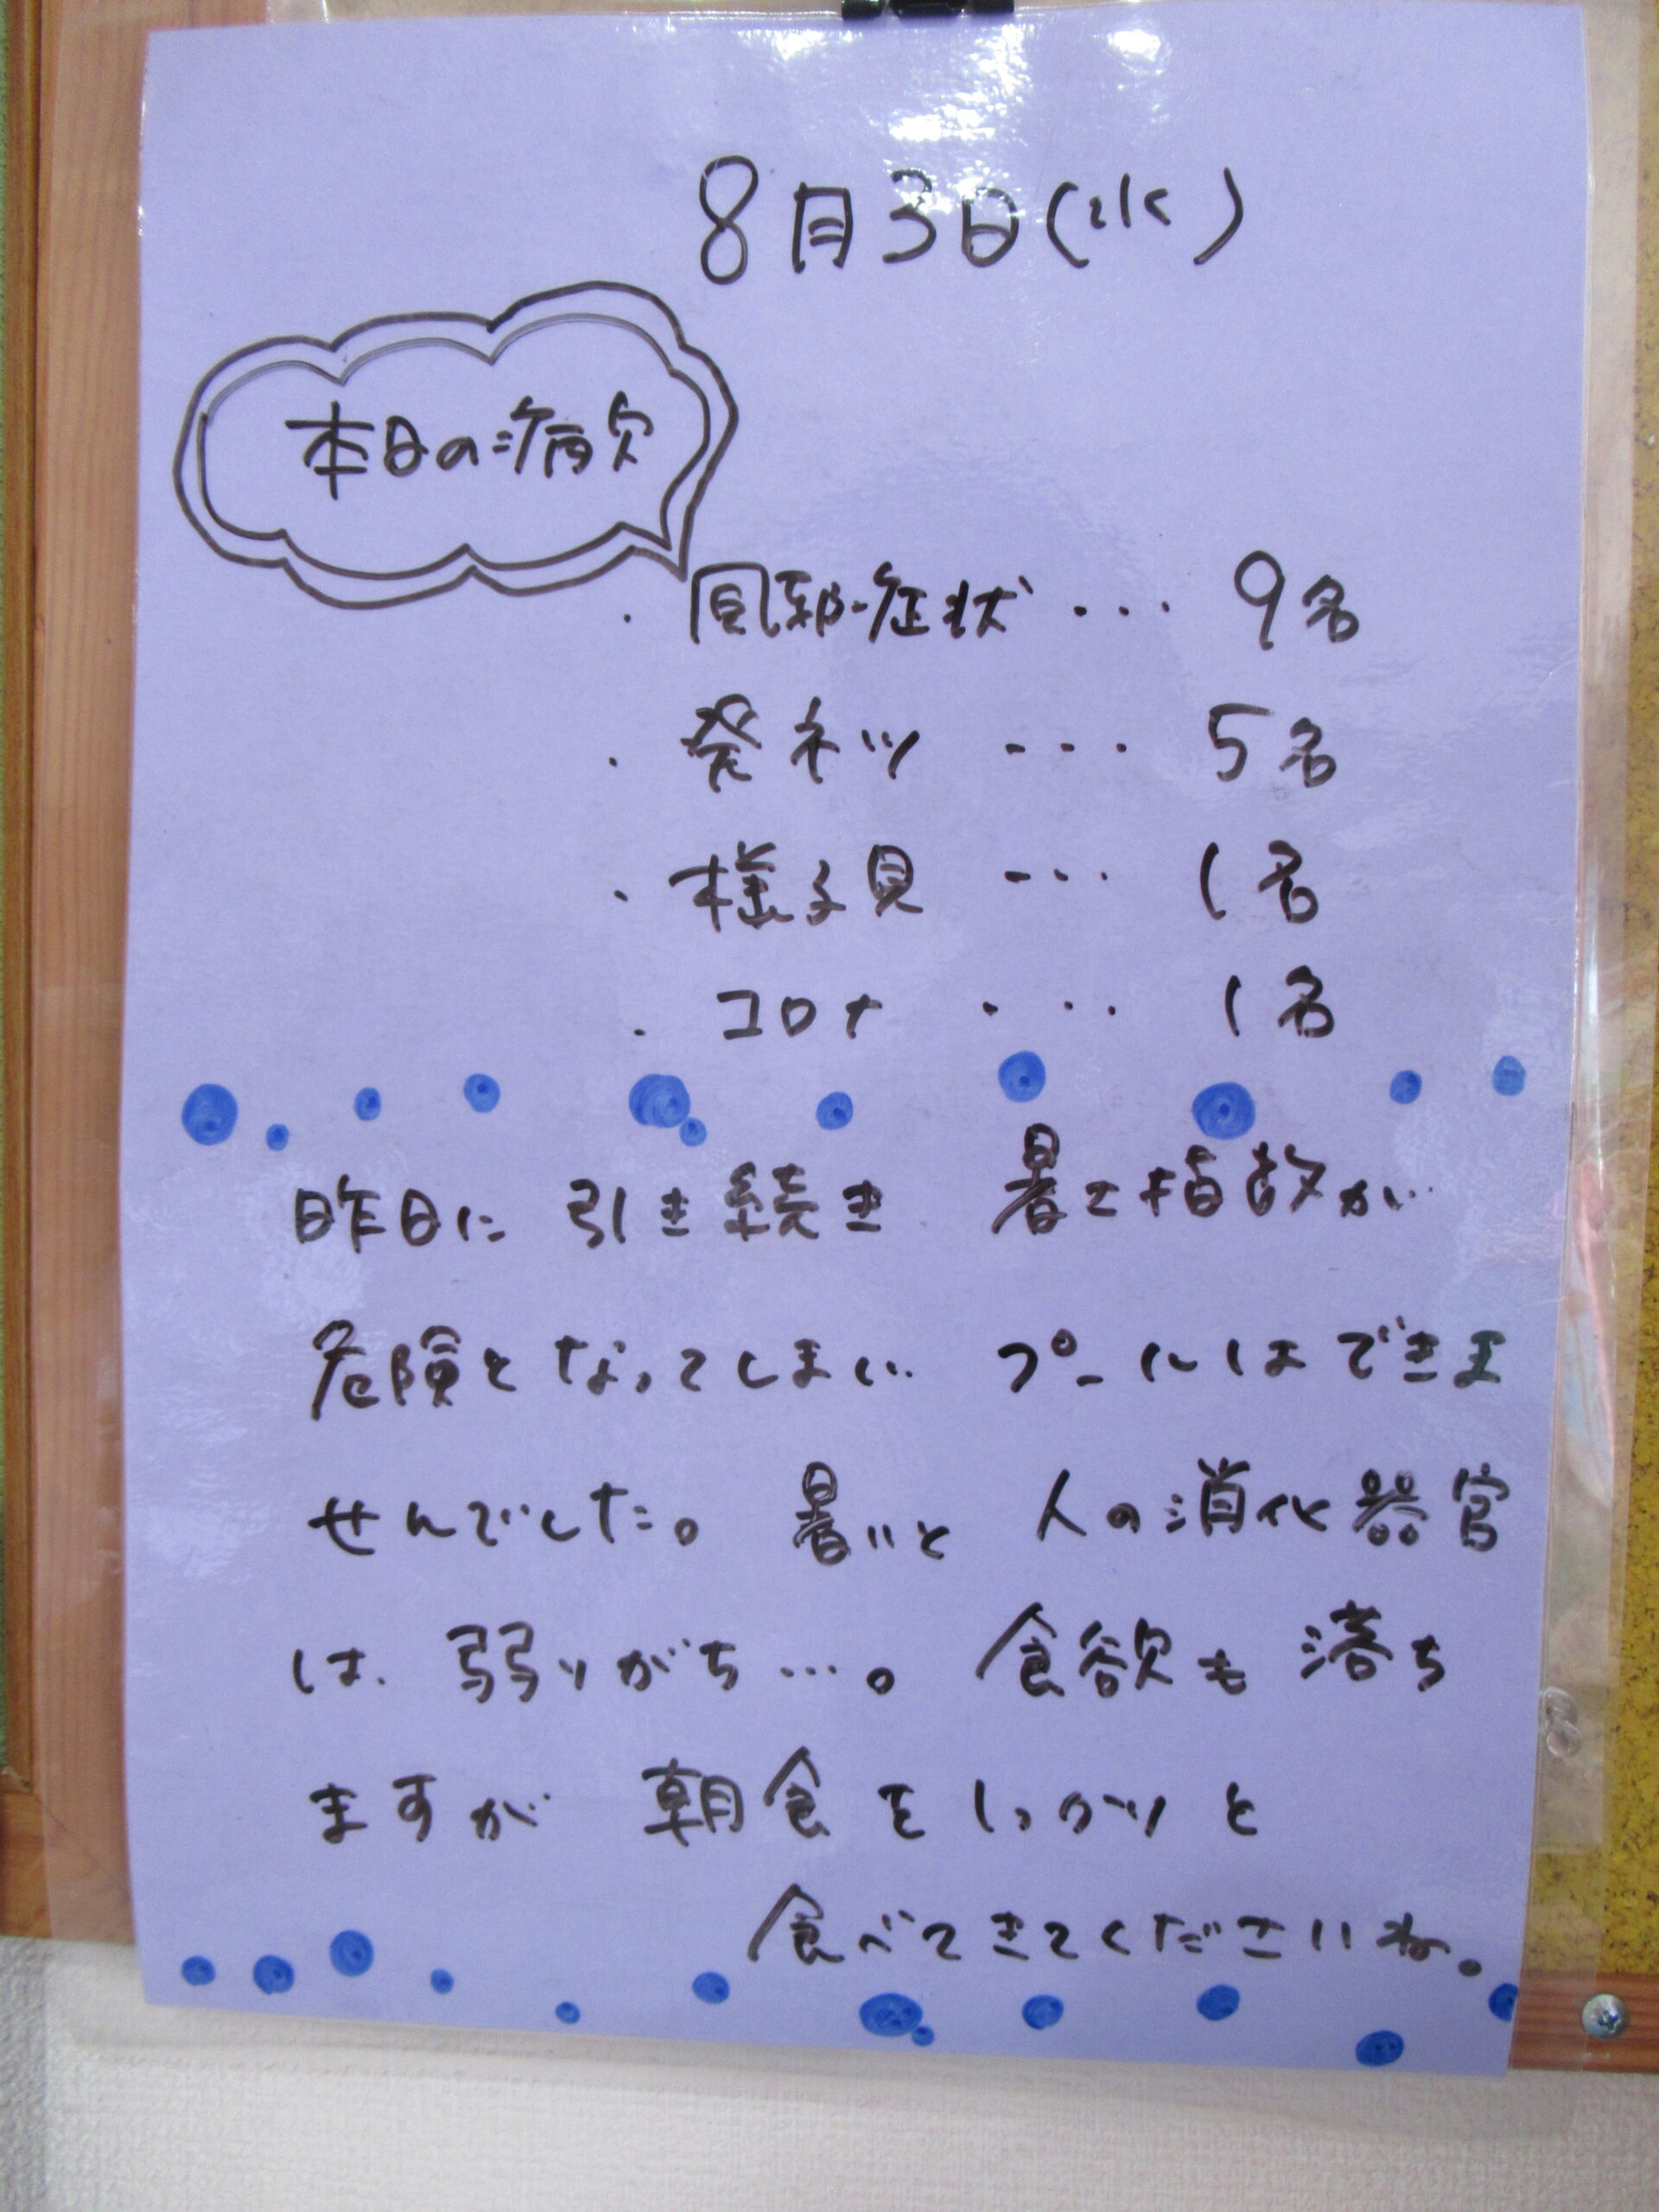 8月3日(水)
本日の病欠
・風邪症状・・・9名
・発ネツ・・・5名
・様子見・・・1名
・コロナ・・・1名
昨日に引き続き 暑さ指数が
危険となってしまい プールはできま
せんでした。暑いと 人の消化器官
は、弱りがち…。食欲も落ち
ますが 朝食をしっかりと
食べてきてくださいね。